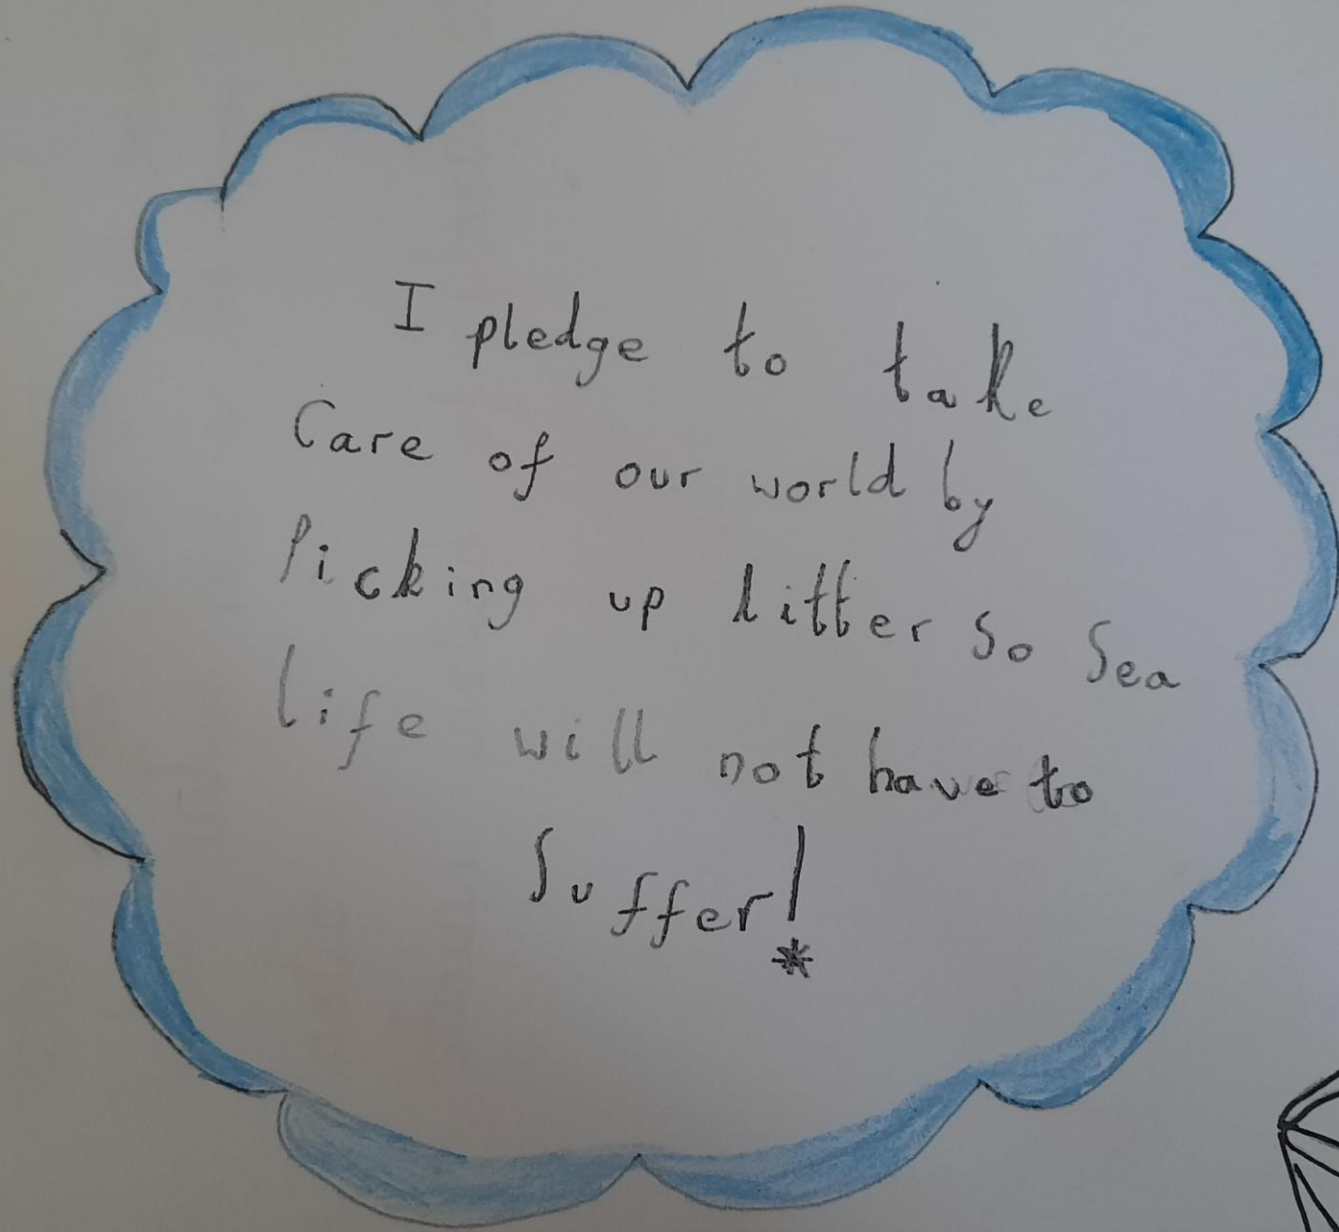 I pledge to take
Care of our world by
Picking up litter so Sea
life will not have to
Suffer!